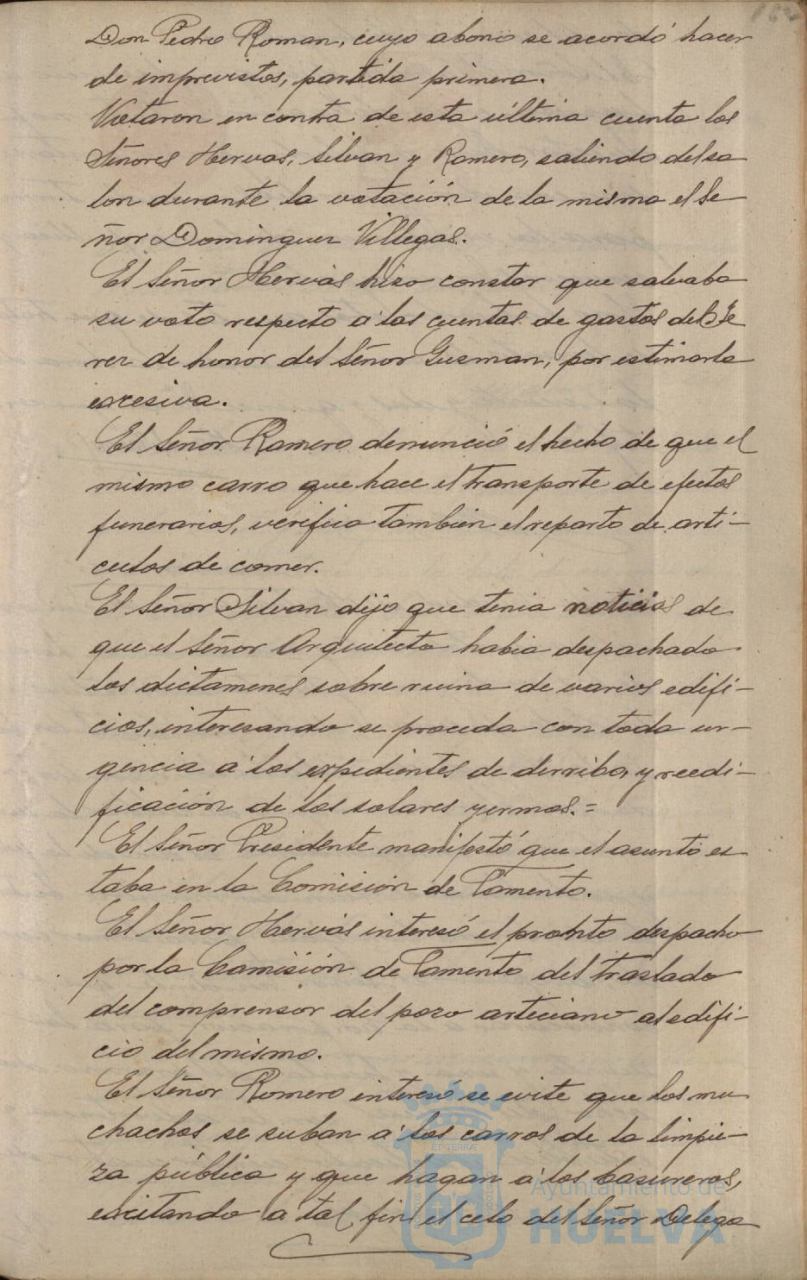 Don Pedro Roman, cuyo abono se acordó hacer
de imprevistos, partida primera.
Votaron en contra de esta última cuenta los
Señores Hervas, Silvan y Romero, saliendo del sa
lon durante la votación de la misma el Se-
ñor Dominguez Villegas.
El Señor Hervás hizo constar que salvaba
su voto respecto a las cuentas de gastos del
de honor del Señor Guzman, por estimarla
excesiva.
El Señor Romero denunció el hecho de que el
mismo carro que hace el transporte de efectos
funerarios, verifica tambien el reparto de arti-
culos de comer.
El Señor Silvan dijo que tenia noticias de
que el Señor Arquitecto habia despachado
los dictamenes sobre ruina de varios edifi-
cios, interesando se proceda con toda ur-
gencia a los expedientes de derribo, y reedi-
ficación de los solares yermos.=
El Señor Presidente manifestó que el asunto es
taba en la Comisión de Fomento.
El Señor Hervás interesó el pronto despacho
por la Comisión de Fomento del traslado
del comprensor del pozo articiano al edifi-
cio del mismo.
El Señor Romero interesó se evite que los mu
chachos se suban a los carros de la limpie-
za pública y que hagan a los basureros,
excitando a tal fin el celo del Señor Delega
Ayuntamiento de
HUELVA